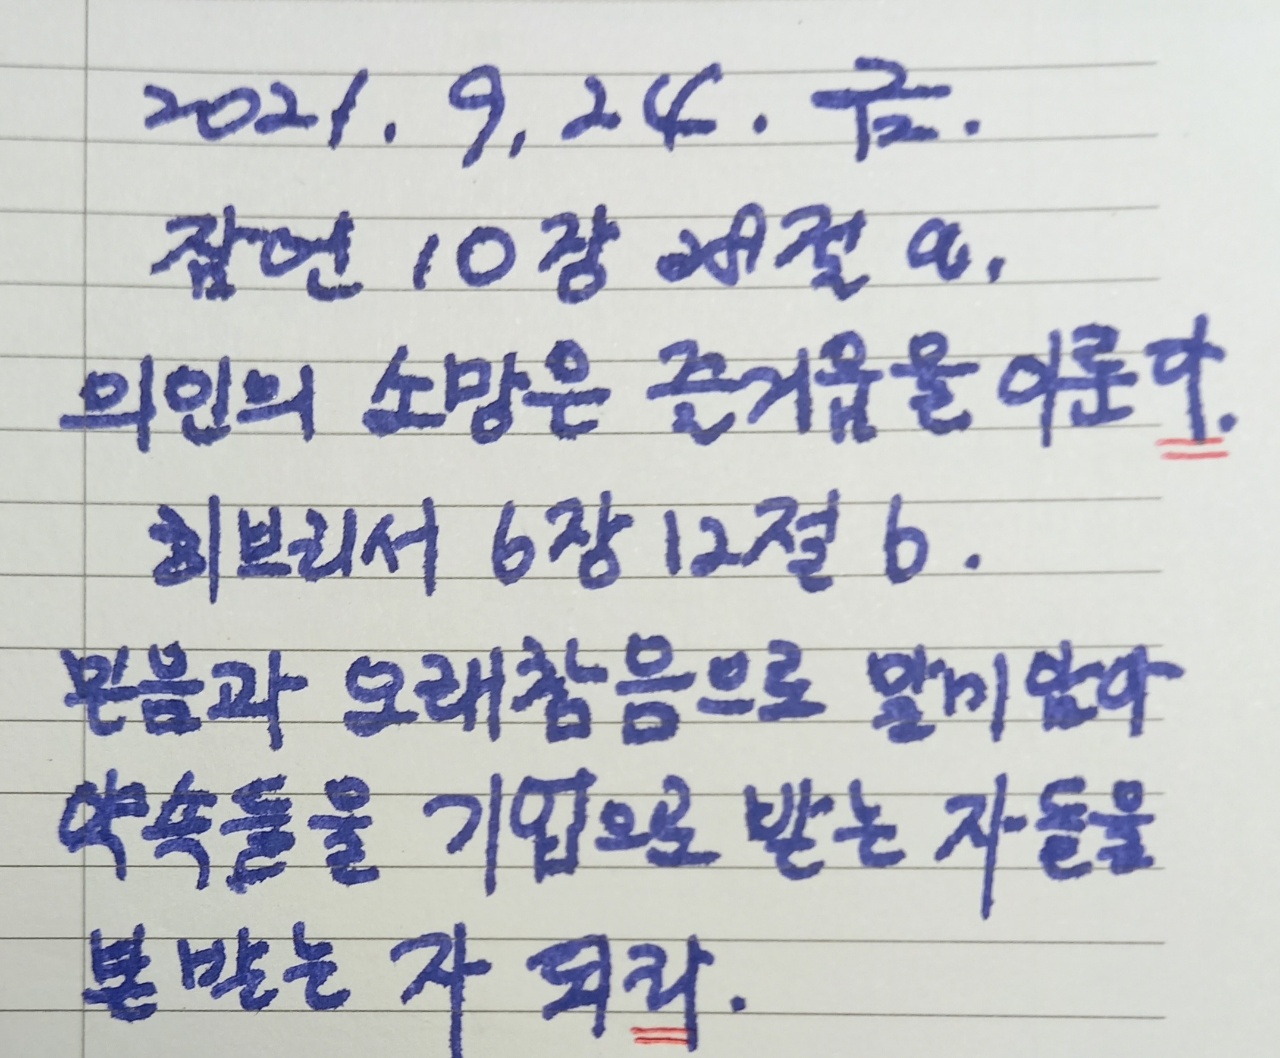 2021. 9. 24. 금.
잠언 10장 28절 a.
의인의 소망은 즐거움을 이룬다.
히브리서 6장 12절 b.
믿음과 오래참음으로 말미암아
약속들을 기업으로 받는 자들을
본받는 자 되라.